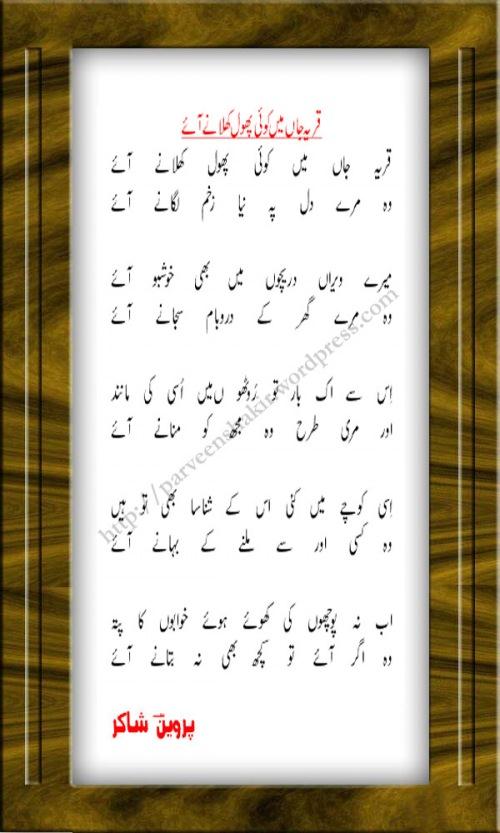 قریہ جاں میں کوئی پھول کھلانے آئے
قریہ جاں میں کوئی پھول کھلانے آئے
وہ مرے دل پہ نیا زخم لگانے آئے
میرے ویراں دریچوں میں بھی خوشبو آئے
وہ مرے گھر کے دروبام سجانے آئے
اِس سے اک بار تو رُوٹھو ںمیں اُسی کی مانند
اور مری طرح وہ مجھ کو منانے آئے
اِسی کوچے میں کئی اس کے شناسا بھی تو ہیں
وہ کسی اور سے ملنے کے بہانے آئے
اب نہ پوچھوں گی کھوئے ہوئے خوابوں کا پتہ
وہ اگر آئے تو کچھ بھی نہ بتانے آئے
پروین شاکر
http://parveenshakir.wordpress.com